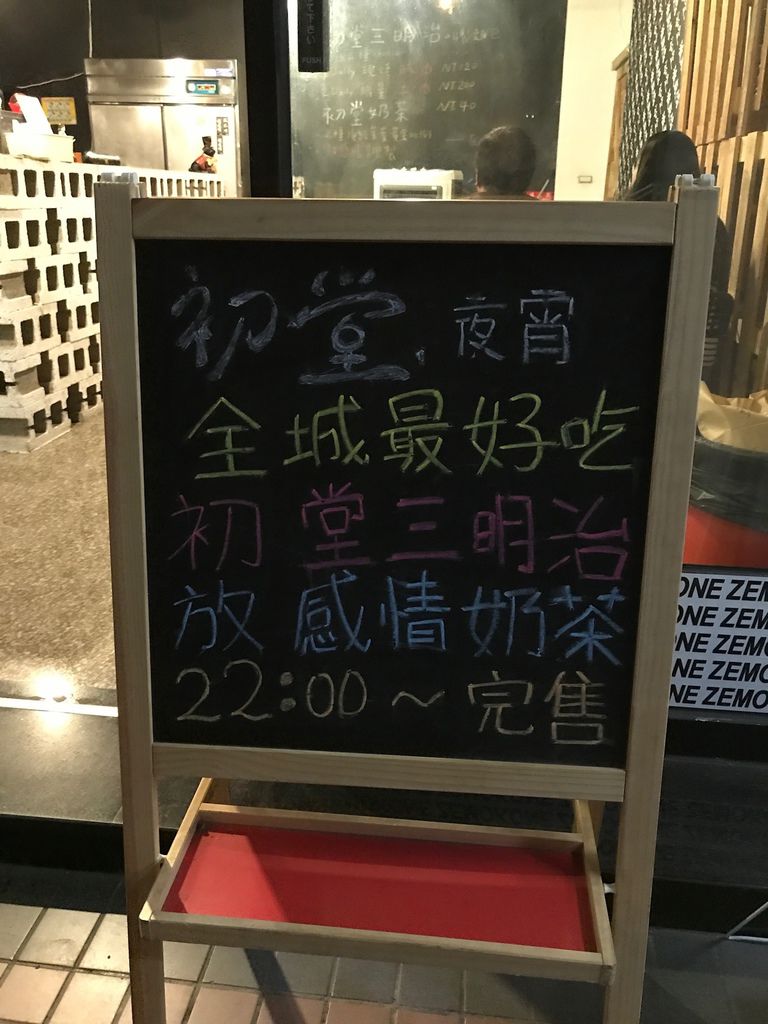 て下さい
PUSH
初堂三明治
NT120
NT200
初堂奶茶 NT40
初堂.夜宵
全城最好吃
初堂三明治
放感情奶茶
22:00~完售
ONE ZEM
ONE ZEMO
ONE ZEMO
NE ZEMO
NE ZEMO